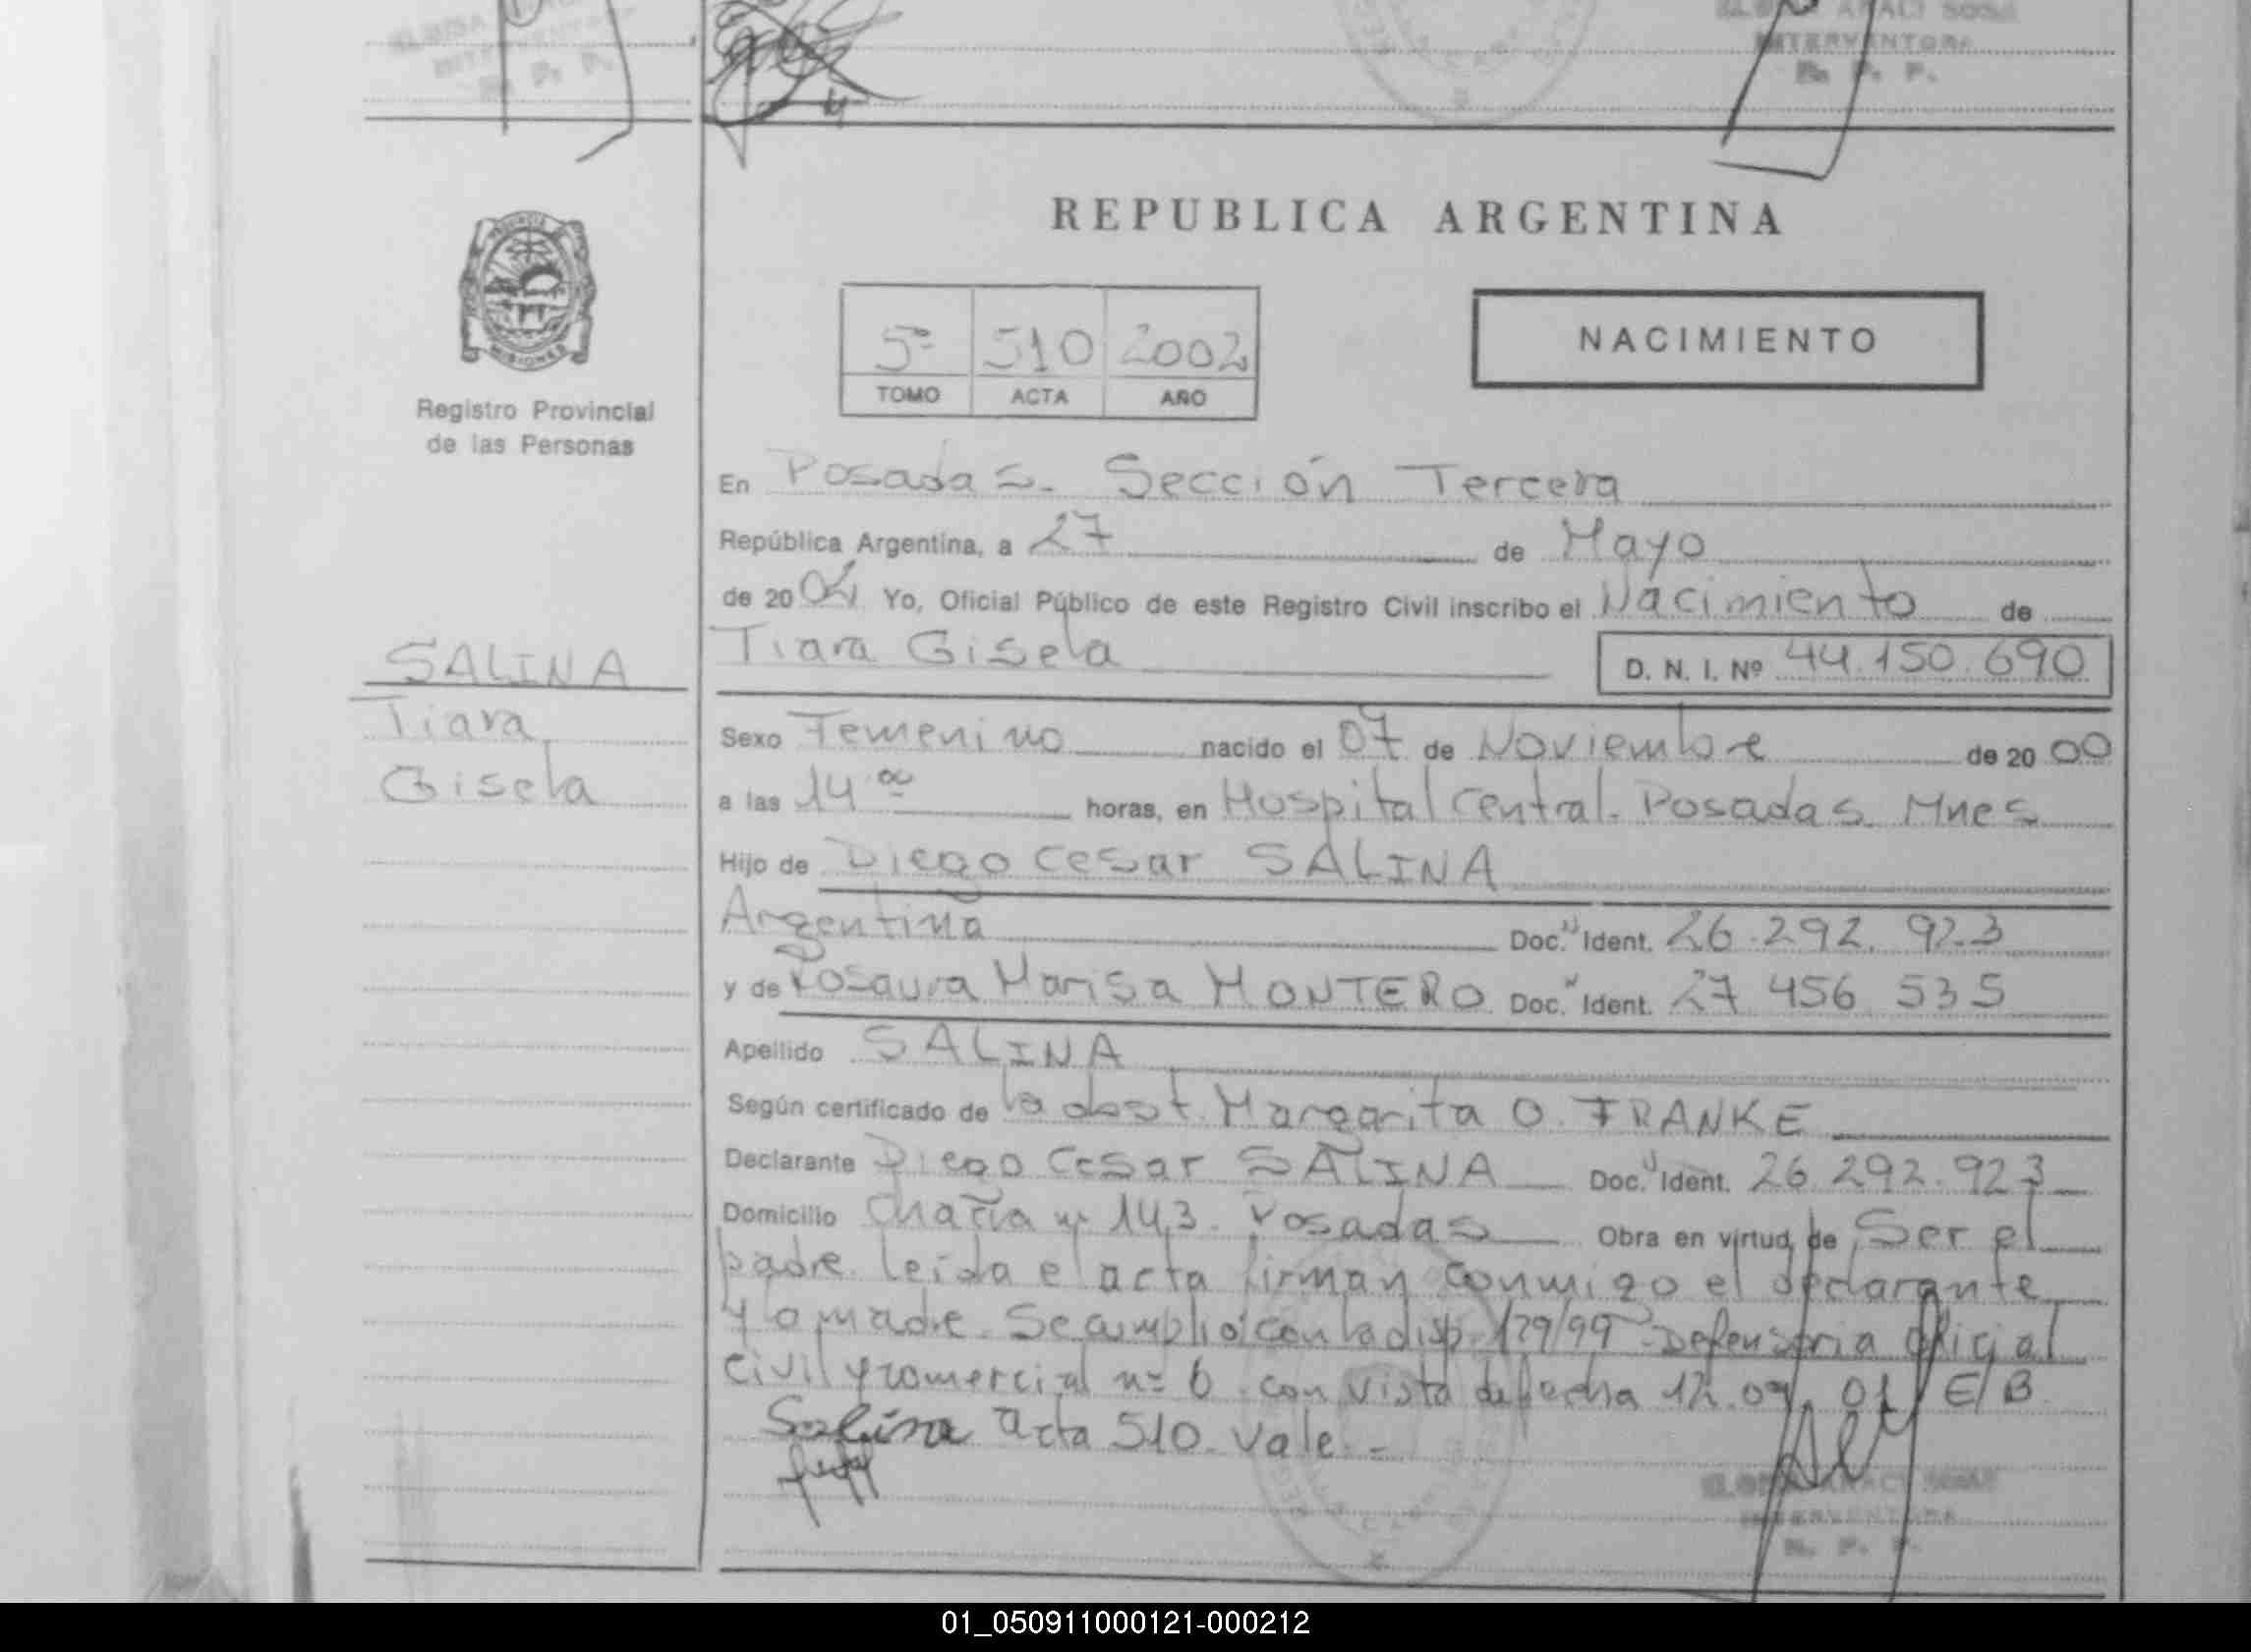 INTERVENTORA
R. P. P.
REPUBLICA ARGENTINA
NACIMIENTO
5º 510 2002
TOMO ACTA AÑO
MISIONES
Registro Provincial
de las Personas
En Posadas. Sección Tercera
República Argentina, a 27 de Mayo
de 20 Yo, Oficial Público de este Registro Civil inscribo el Nacimiento de
SALINA
Tiara
Gisela
Tiara Gisela D. N. I. Nº 44.150.690
Sexo Femenino nacido el 07 de Noviembre de 20 00
a las 14 00 horas, en Hospital Central. Posadas. Mnes
Hijo de Diego Cesar SALINA
Argentina Doc. Ident. 26.292.923
y de Rosaura Marisa MONTERO Doc. Ident. 27 456 535
Apellido SALINA
Según certificado de la obst. Margarita O. FRANKE
Declarante Diego Cesar SALINA Doc. Ident. 26.292.923
Domicilio nº 143. Posadas Obra en virtud de Ser el
padre. leída el acta firman conmigo el declarante
y la madre. Se cumplió con la disp. 179/99 Defensoria Oficial
Civil y comercial nº 6. con vista de fecha 12.09.01 E/B
Salina acta 510. Vale.-
INTERVENTORA
R. P. P.
01_050911000121-000212